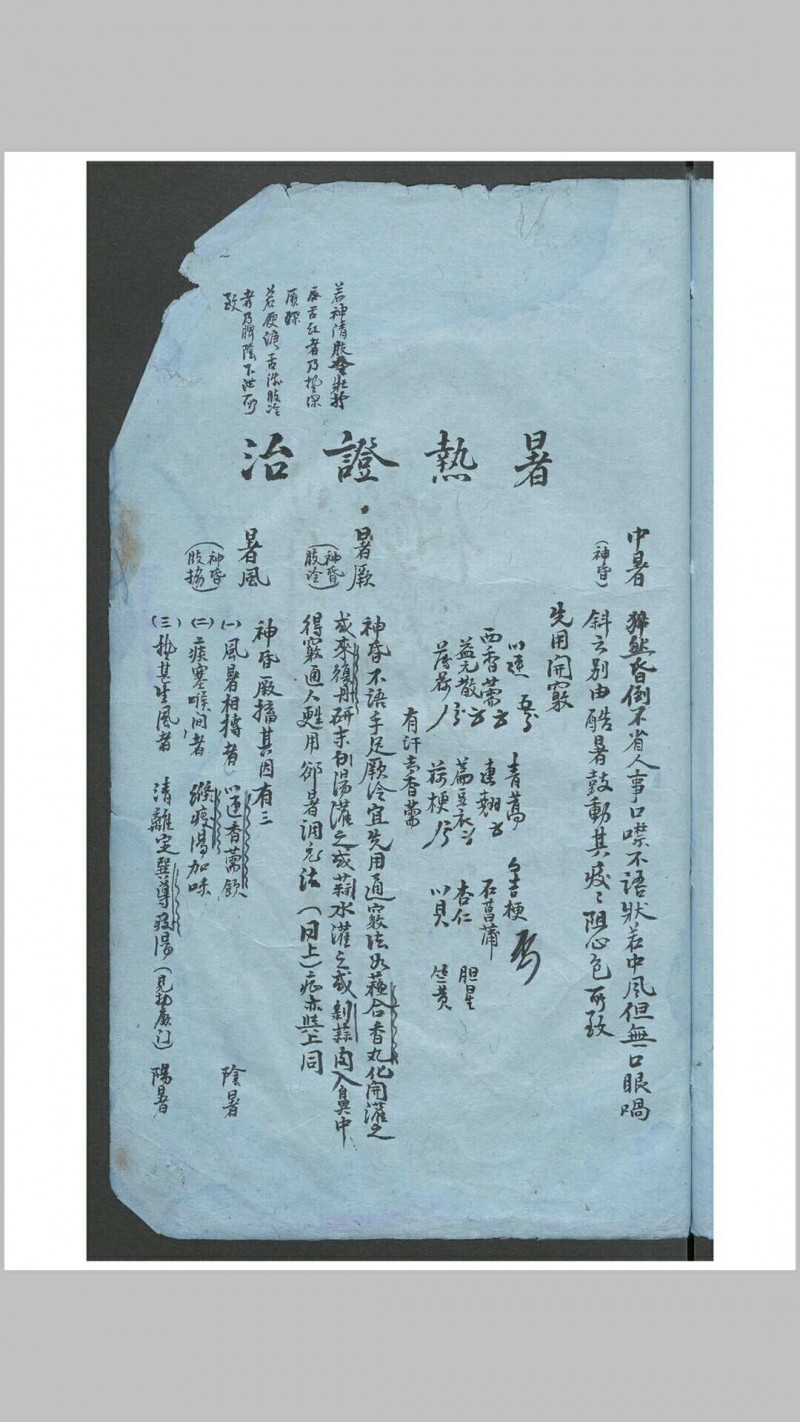 暑熱證治
若神清肢
厥舌紅者乃
若便溏舌淡肢冷
者乃脾陰下泄所
致
中暑
(神昏)
猝然昏倒不省人事口噤不語狀若中風但無口眼喎
斜云別由酷暑鼓動其痰〻阻心包所致
先用開竅
青蒿 桔梗
西香薷 連翹 石菖蒲
益元散 扁豆衣 杏仁 胆星
薄荷 荷梗 川貝 竺黄
有汗去香薷
暑厥
(神昏
肢冷)
神昏不語手足厥冷宜先用通竅法如蘇合香丸化開灌之
或來復丹研末白湯灌之或蒜水灌之或剝蒜肉入鼻中
得竅通人甦用卻暑調元法(同上)症亦與上同
暑風
(神昏
肢搐)
神昏厥搐其因有三
(一)風暑相搏者 香薷飲 陰暑
(二)痰塞喉间者 湯加味
(三)熱甚生風者 清離定巽導痰湯(見 厥门) 陽暑